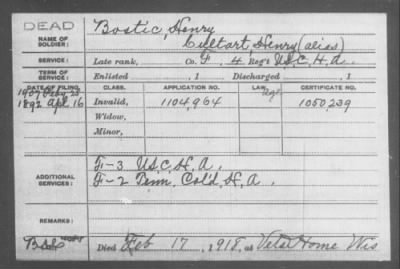 DEAD
NAME OF SOLDIER: Bostic, Henry
Cultart, Henry (alias)
SERVICE: Late rank, Co. F, 4 Reg't U.S.C.H.A.
TERM OF SERVICE: Enlisted , 1 Discharged , 1
DATE OF FILING. CLASS. APPLICATION NO. LAW. CERTIFICATE NO.
1907 Feby 23
1892 Apl 16 Invalid, 1104,964 1050,239
Widow,
Minor,
ADDITIONAL SERVICES: F-3 U.S.C.H.A.
F-2 Tenn. Cold. H.A.
REMARKS:
Died Feb 17, 1918, at Vets Home Wis